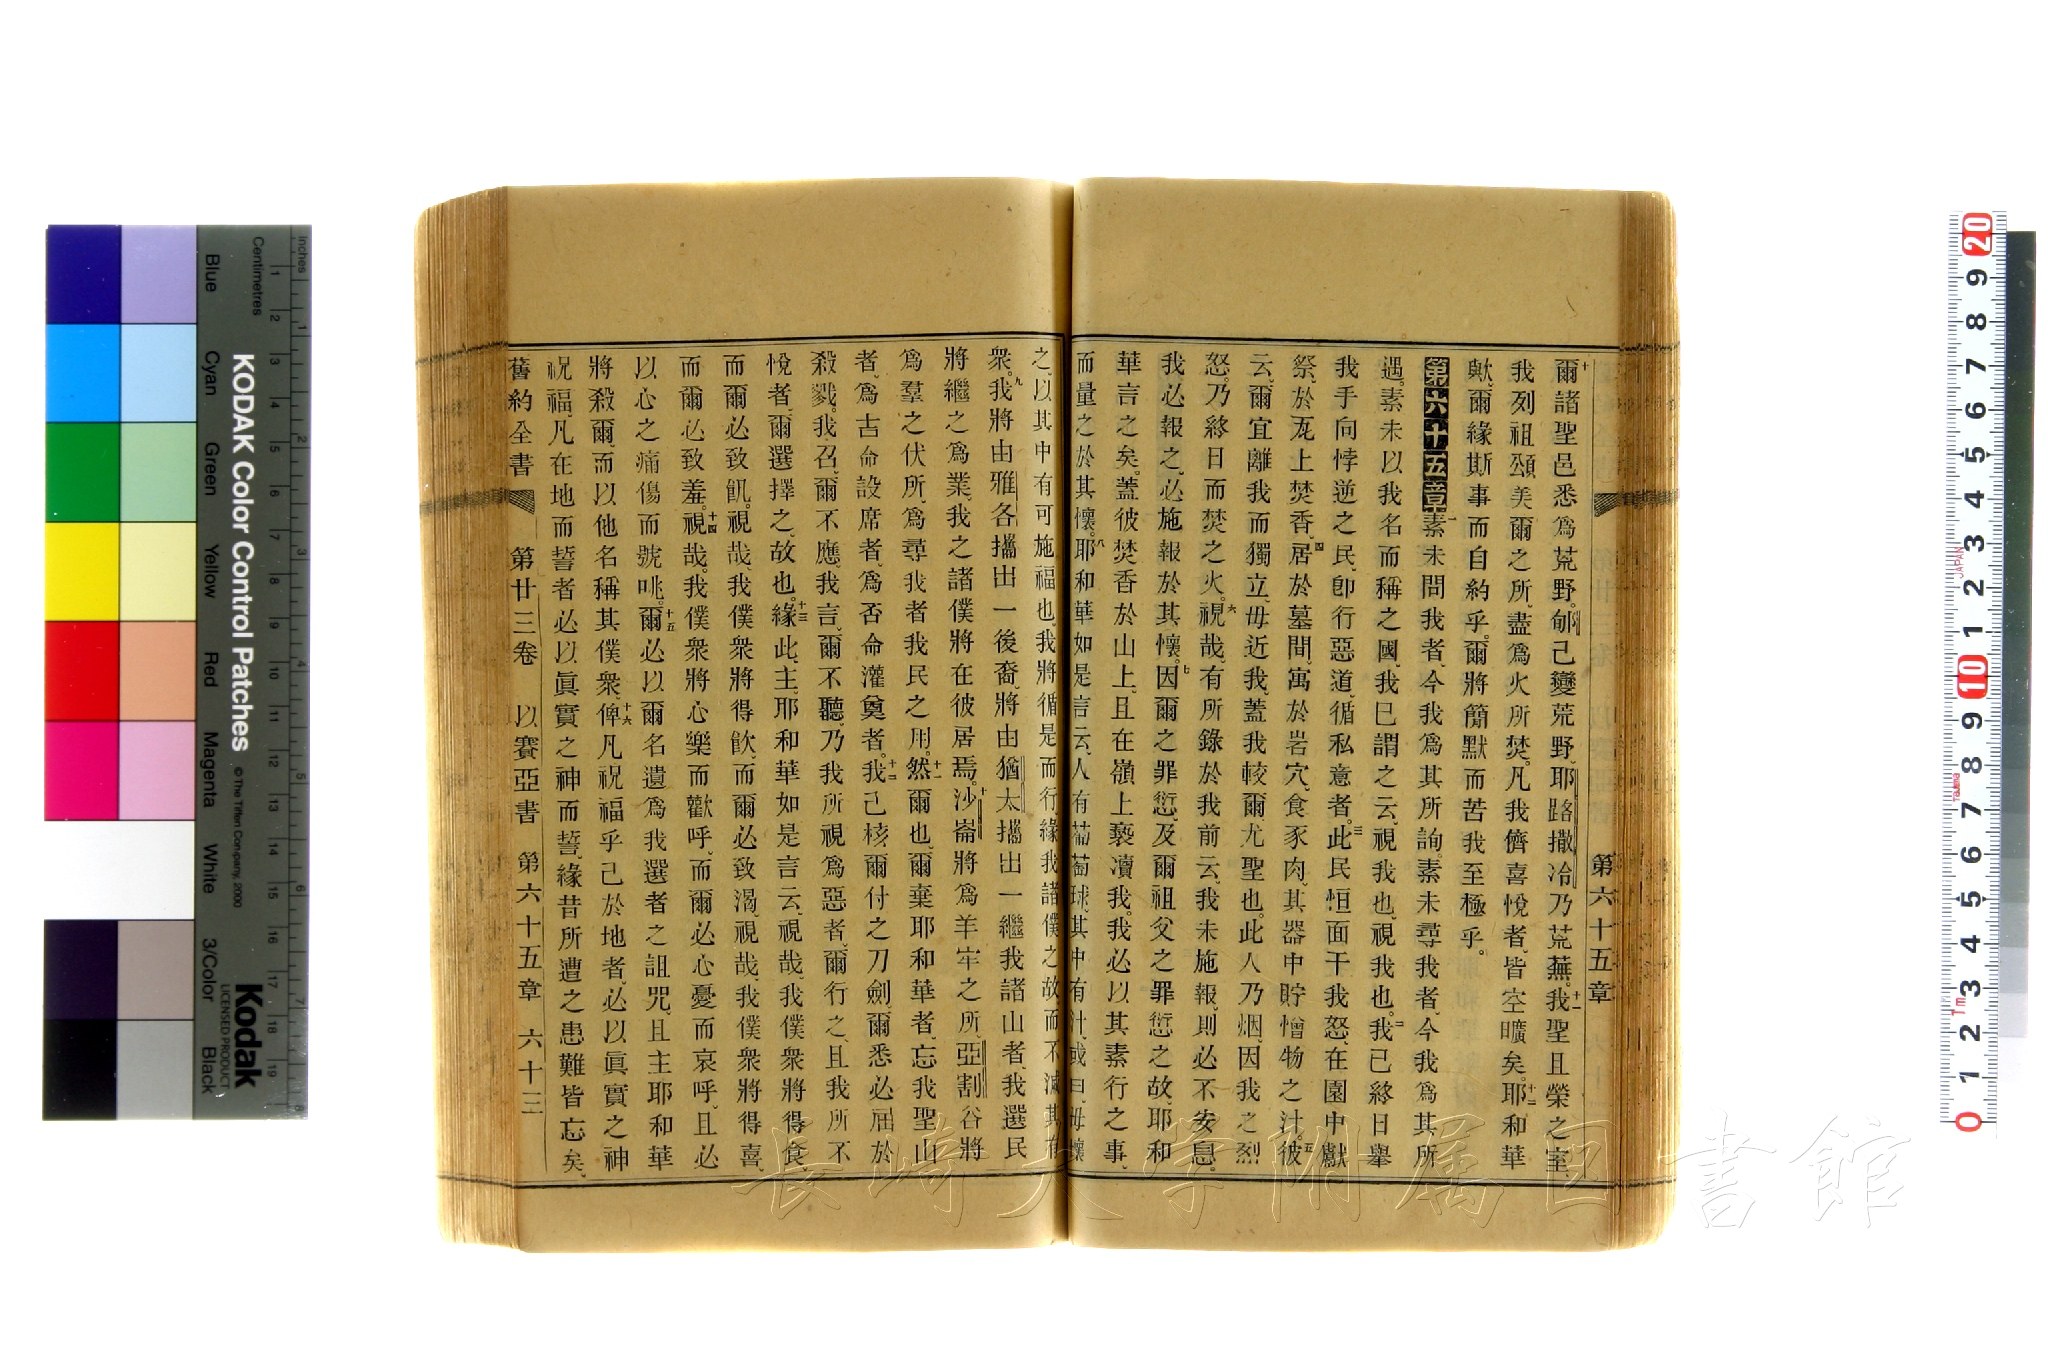 第六十五章
爾諸聖邑悉爲荒野。郇己變荒野、耶路撒冷乃荒蕪。我聖且榮之室、
我列祖頌美爾之所、盡爲火所焚。凡我儕喜悅者、皆空曠矣。耶和華
歟、爾緣斯事而自約乎。爾將簡默而苦我至極乎。
第六十五章素未問我者、今我爲其所詢。素未尋我者、今我爲其所
遇。素未以我名而稱之國、我已謂之云、視我也、視我也。我已終日舉
我手向悖逆之民、卽行惡道、循私意者。此民恒面干我怒、在園中獻
祭、於瓦上焚香、居於墓間、寓於岩穴、食豕肉、其器中貯憎物之汁。彼
云、爾宜離我而獨立、毋近我、蓋我較爾尤聖也。此人乃烟、因我之烈
怒。乃終日而焚之火。視哉、有所錄於我前云、我未施報、則必不安息。
我必報之、必施報於其懷。因爾之罪愆、及爾祖父之罪愆之故、耶和
華言之矣。蓋彼焚香於山上、且在嶺上褻瀆我。我必以其素行之事、
而量之於其懷。耶和華如是言云、人有葡萄球、其中有汁、或曰、毋壞
之、以其中有可施福也、我將循是而行、緣我諸僕之故、而不滅其有
衆。我將由雅各攜出一後裔、將由猶太攜出一繼我諸山者、我選民
將繼之爲業、我之諸僕將在彼居焉。沙崙將爲羊牢之所、亞割谷將
爲羣之伏所、爲尋我者我民之用。然爾也、爾棄耶和華者、忘我聖山
者、爲吉命設席者、爲否命灌奠者。我己核爾付之刀劍、爾悉必屈於
殺戮。我召、爾不應、我言、爾不聽、乃我所視爲惡者、爾行之、且我所不
悅者、爾選擇之、故也。緣此、主耶和華如是言云、視哉、我僕衆將得食、
而爾必致飢。視哉、我僕衆將得飮、而爾必致渴、視哉、我僕衆將得喜、
而爾必致羞。視哉。我僕衆將心樂而歡呼、而爾必心憂而哀呼、且必
以心之痛傷而號咷。爾必以爾名遺爲我選者之詛咒、且主耶和華
將殺爾、而以他名稱其僕衆、俾凡祝福乎己於地者、必以眞實之神
祝福、凡在地而誓者必以眞實之神而誓、緣昔所遭之患難皆忘矣、
舊約全書 第廿三卷 以賽亞書 第六十五章 六十三
Blue
Cyan
Green
Yellow
Red
Magenta
White
3/Color
Black
KODAK Color Control Patches
© The Tiffen Company, 2000
Kodak
LICENSED PRODUCT
inches
Centimetres
長崎大学附属図書館